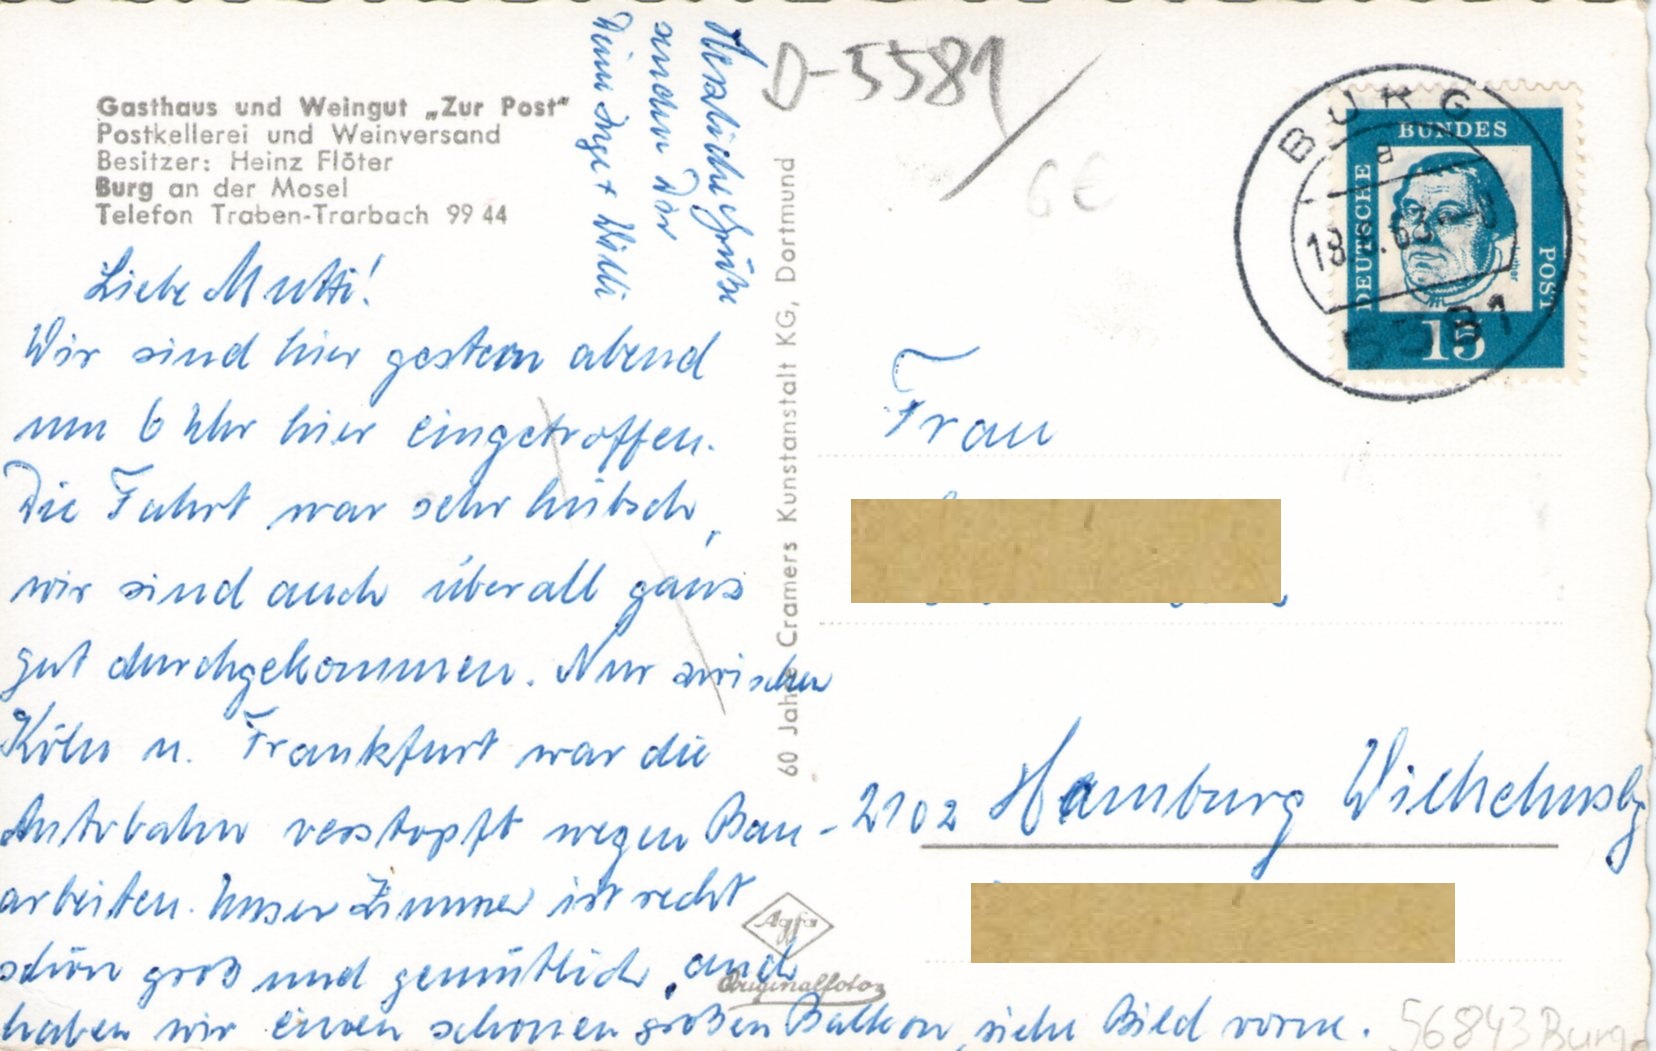 Gasthaus und Weingut „Zur Post"
Postkellerei und Weinversand
Besitzer: Heinz Flöter
Burg an der Mosel
Telefon Traben-Trarbach 99 44
Liebe Mutti!
Wir sind hier gestern abend
um 6 Uhr hier eingetroffen.
Die Fahrt war sehr hübsch,
wir sind auch überall ganz
gut durchgekommen. Nur zwischen
Köln u. Frankfurt war die
Autobahn verstopft wegen Bau-
arbeiten. Unser Zimmer ist recht
schön groß und gemütlich, auch
haben wir einen schönen großen Balkon, siehe Bild vorne.
Herzliche Grüße
senden Dir
Deine Inge + Willi
60 Jahre Cramers Kunstanstalt KG, Dortmund
Agfa
Originalfoto
D-5581
6€
BURG
a
5581
DEUTSCHE
BUNDES
POST
15
Frau
2102 Hamburg Wilhelmsbg
56843 Burg